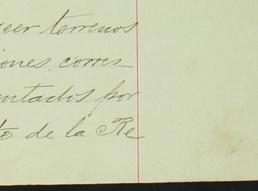 eer terrenos
iones corres
entados por
to de la Re